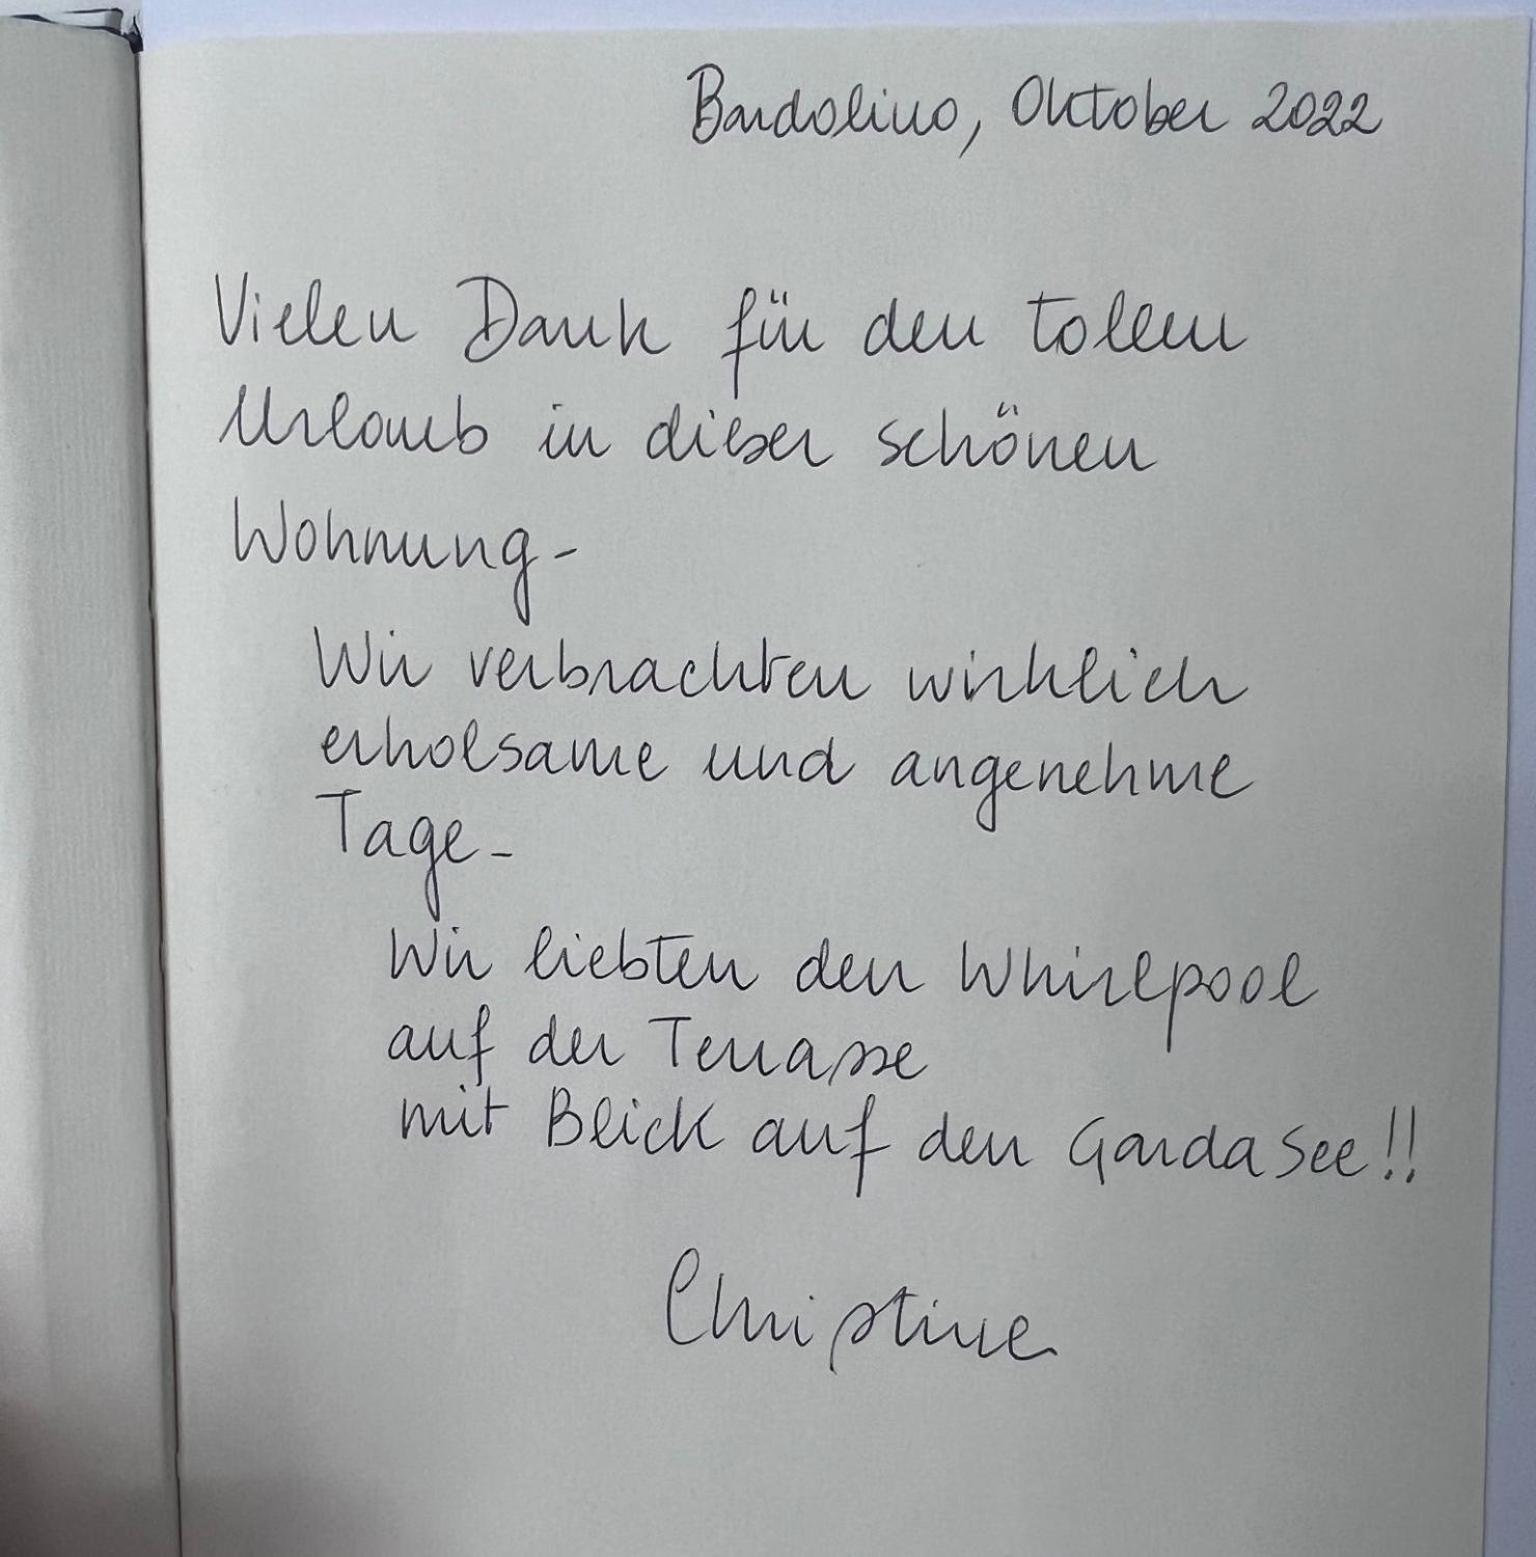 Bardolino, Oktober 2022
Vielen Dank für den tollen
Urlaub in dieser schönen
Wohnung -
Wir verbrachten wirklich
erholsame und angenehme
Tage -
Wir liebten den Whirlpool
auf der Terrasse
mit Blick auf den Gardasee!!
Christine